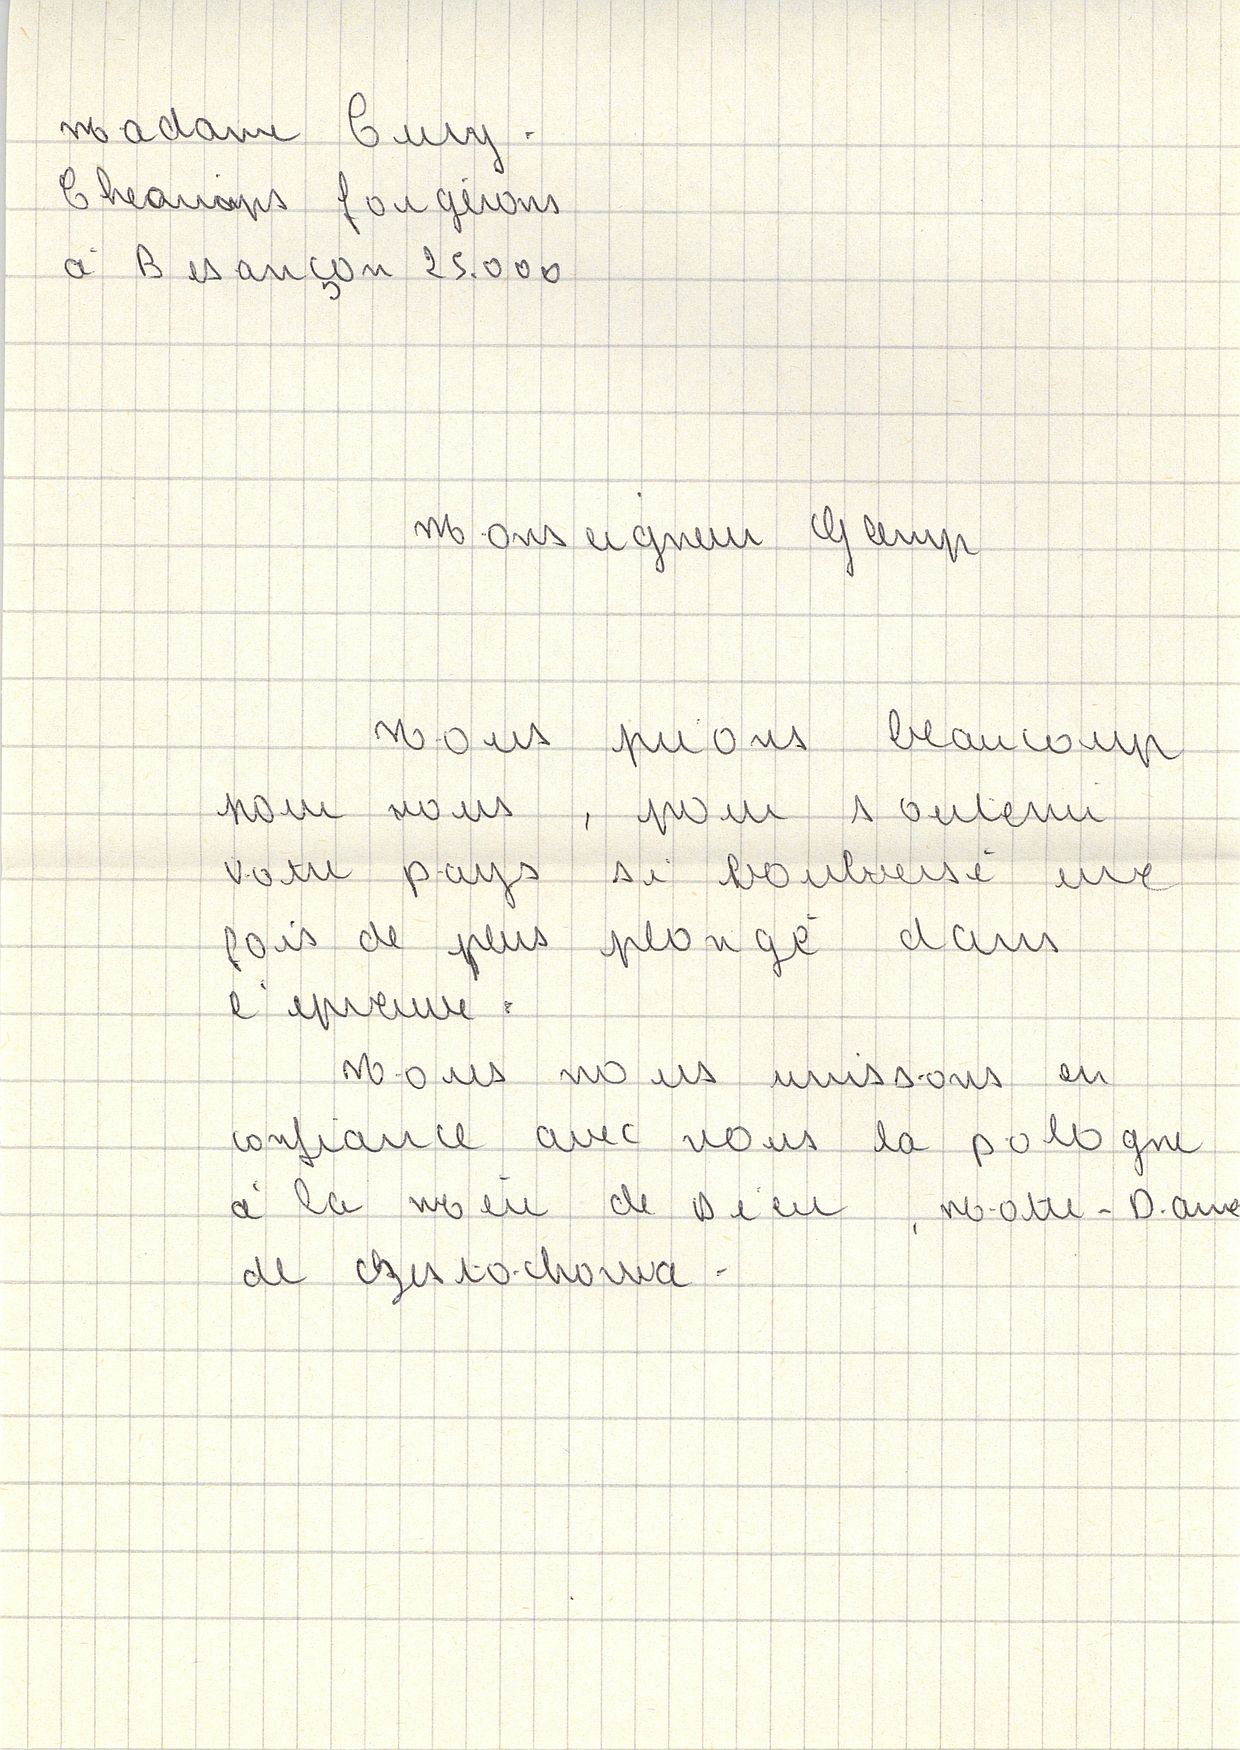 Madame Cuny.
Cheamps fougerons
à Besançon 25.000
Monseigneur Glemp
Nous prions beaucoup
pour vous, pour soutenir
votre pays si boulversé une
fois de plus plongé dans
l'épreuve.
Nous nous unissons en
confiance avec vous la pologne
à la Mère de Dieu, Notre-Dame
de Czestochowa.